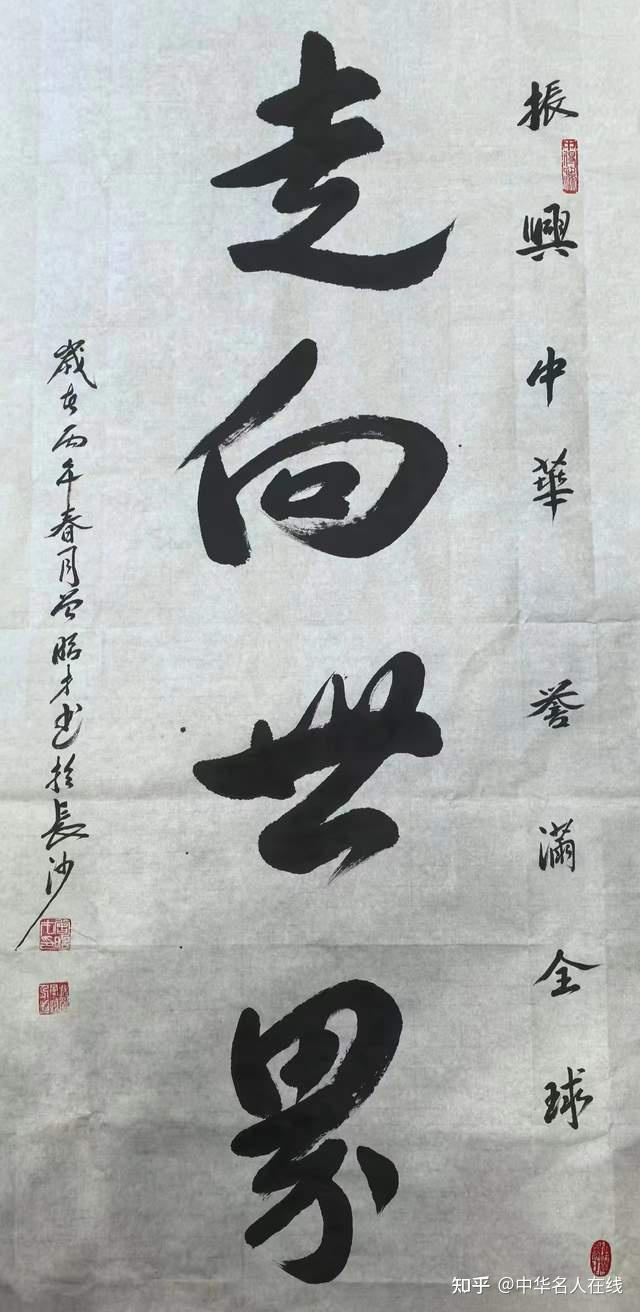 振興中華 譽滿全球
走向世界
歲在丙午春月曾昭才书於長沙
知乎 @中华名人在线